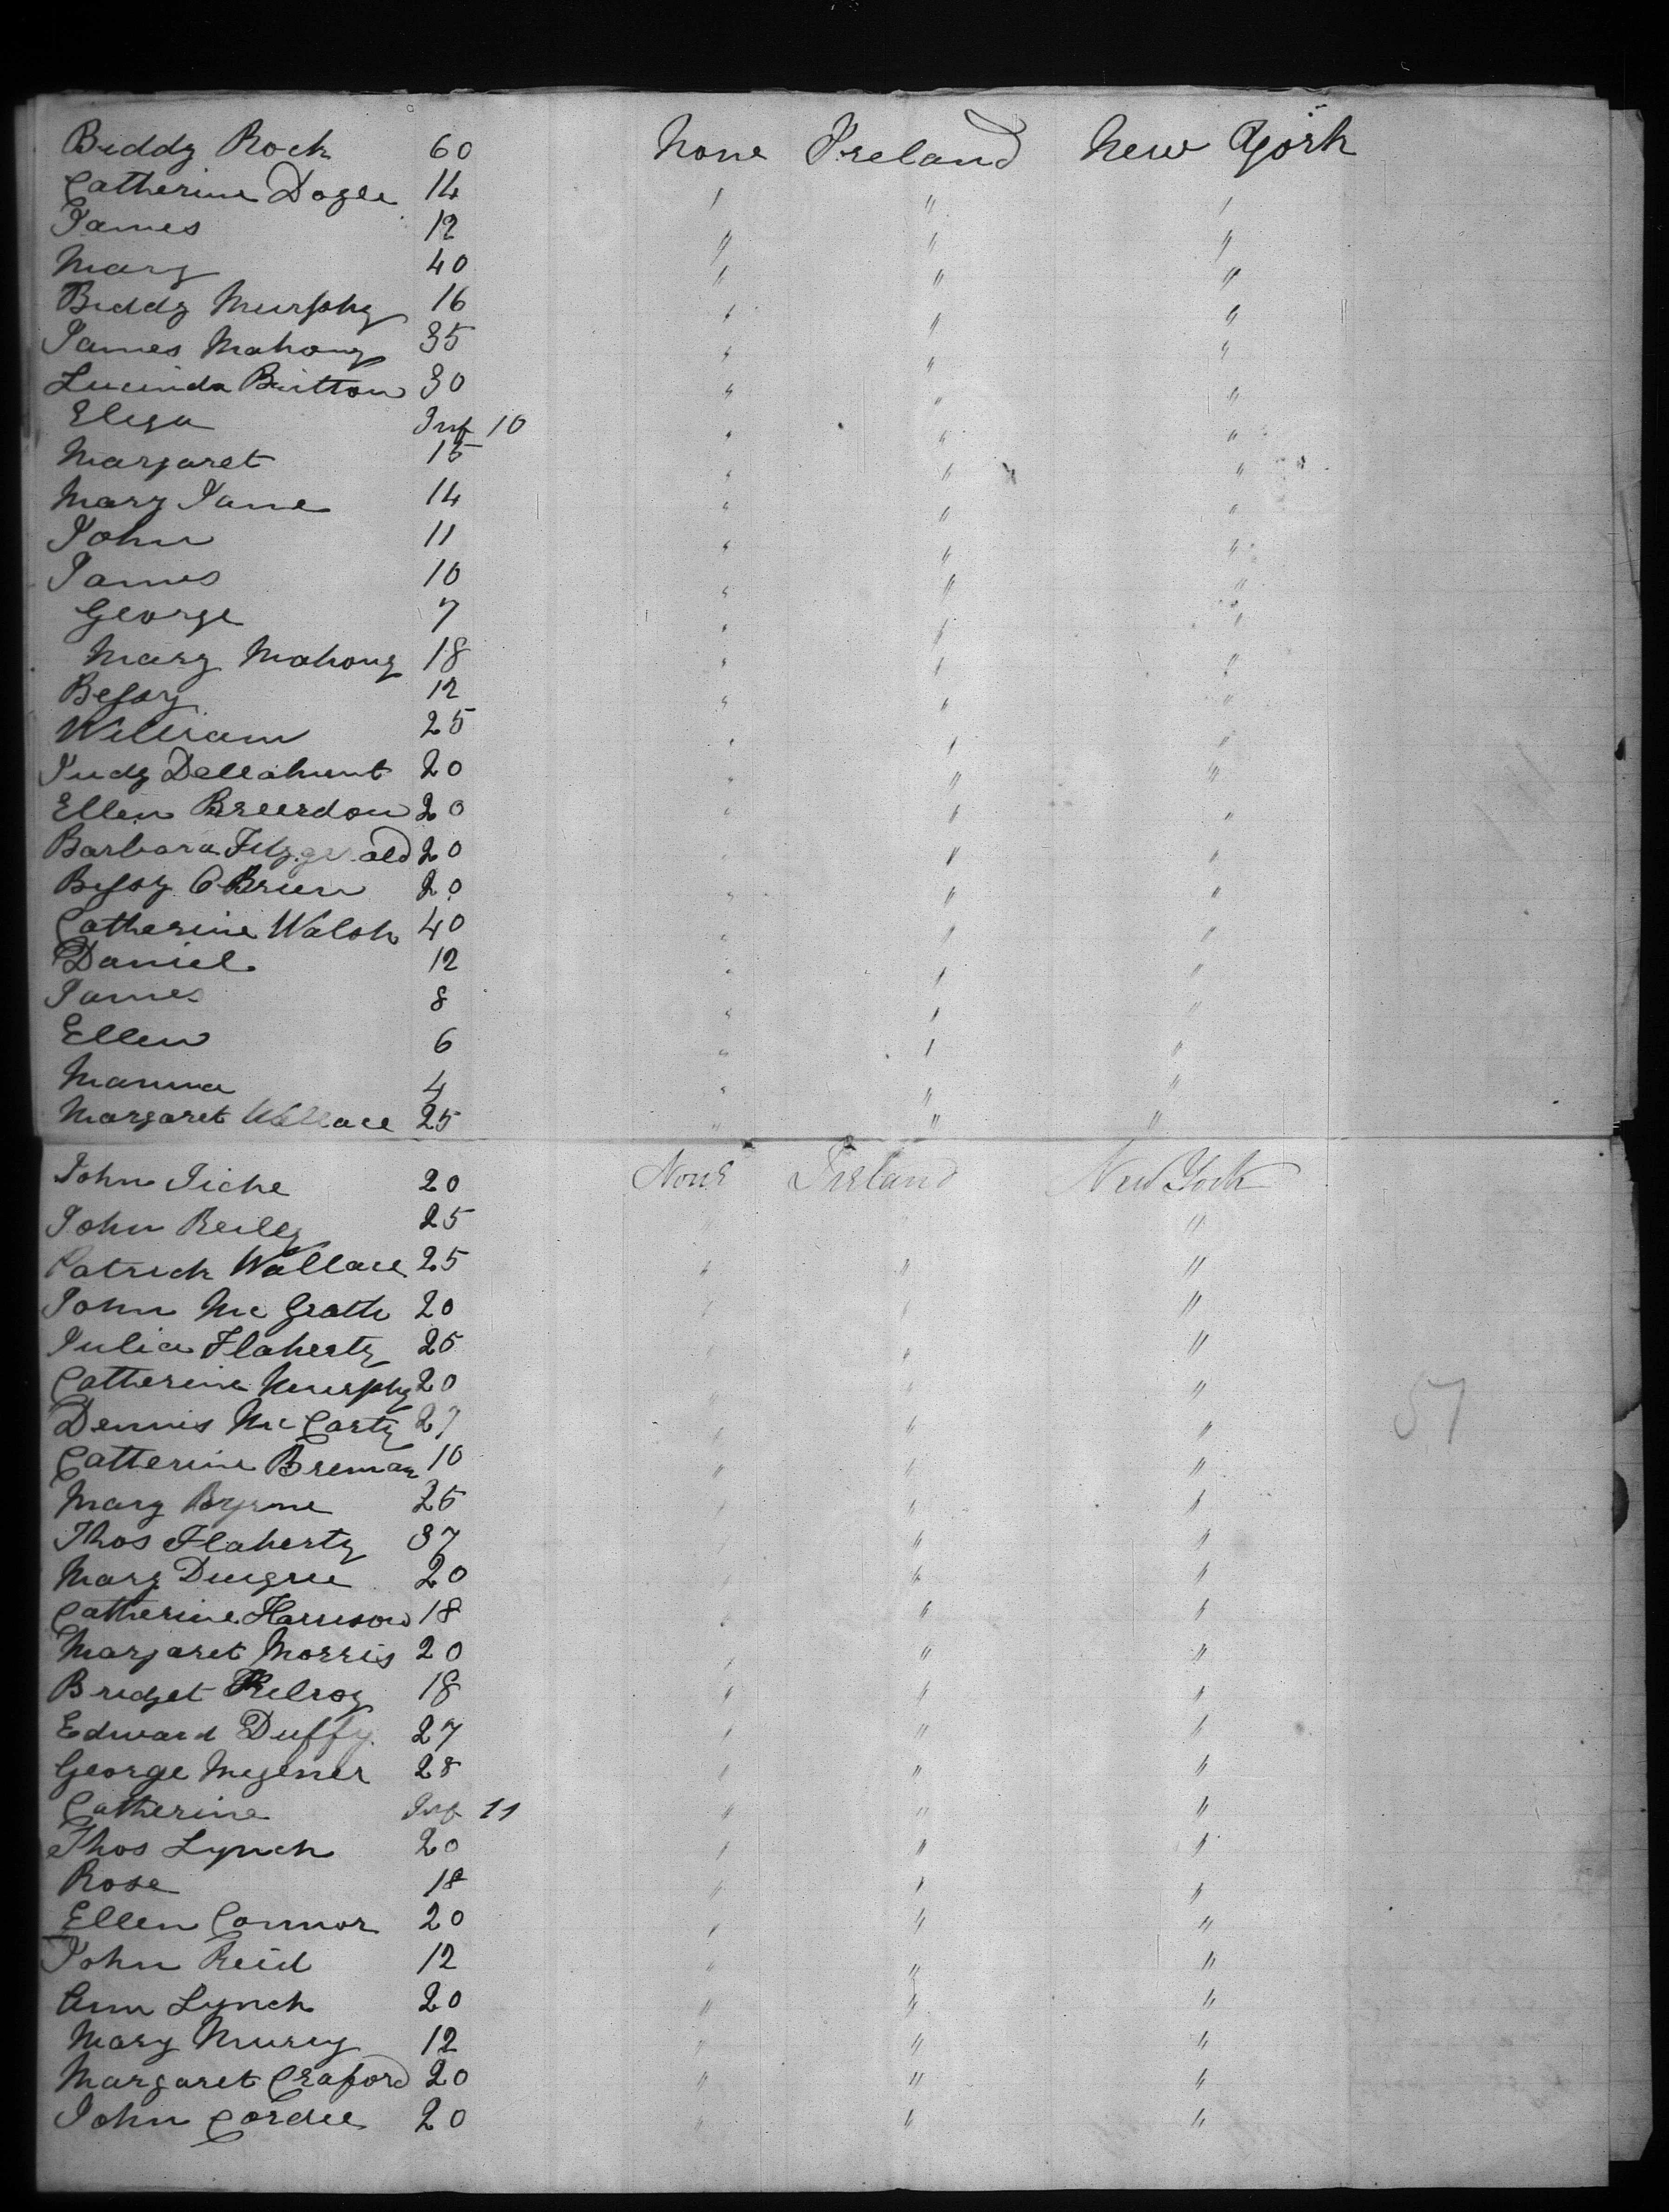 Biddy Roch 60 None Ireland New York
Catherine Dogle 14 " " "
James 12 " " "
Mary 40 " " "
Biddy Murphy 16 " " "
James Mahony 35 " " "
Lucinda Britton 30 " " "
Eliza Inf 10 " " "
Margaret 15 " " "
Mary Jane 14 " " "
John 11 " " "
James 10 " " "
George 7 " " "
Mary Mahony 18 " " "
Bessy 12 " " "
William 25 " " "
Judy Dellahunt 20 " " "
Ellen Breerdon 20 " " "
Barbara Fitzgerald 20 " " "
Bessy O Brien 20 " " "
Catherine Walsh 40 " " "
Daniel 12 " " "
James 8 " " "
Ellen 6 " " "
Manna 4 " " "
Margaret Wallace 25 " " "
John 20 None Ireland New York
John Reiley 25 " "
Patrick Wallace 25 " " "
John Mc Grath 20 " " "
Julia Flaherty 25 " " "
Catherine Murphy 20 " " "
Dennis Mc Carty 27 " " " 57
Catterine Brenan 10 " " "
Mary Byrne 25 " " "
Thos Flaherty 37 " " "
Mary 20 " " "
Catherine Harrison 18 " " "
Margaret Morris 20 " " "
Bridget Kilroy 18 " " "
Edward Duffy 27 " " "
George Megener 28 " " "
Catherine Inf 11 " " "
Thos Lynch 20 " " "
Rose 18 " " "
Ellen Connor 20 " " "
John Reid 12 " " "
Ann Lynch 20 " " "
Mary Murey 12 " " "
Margaret Craford 20 " " "
John Cordee 20 " " "